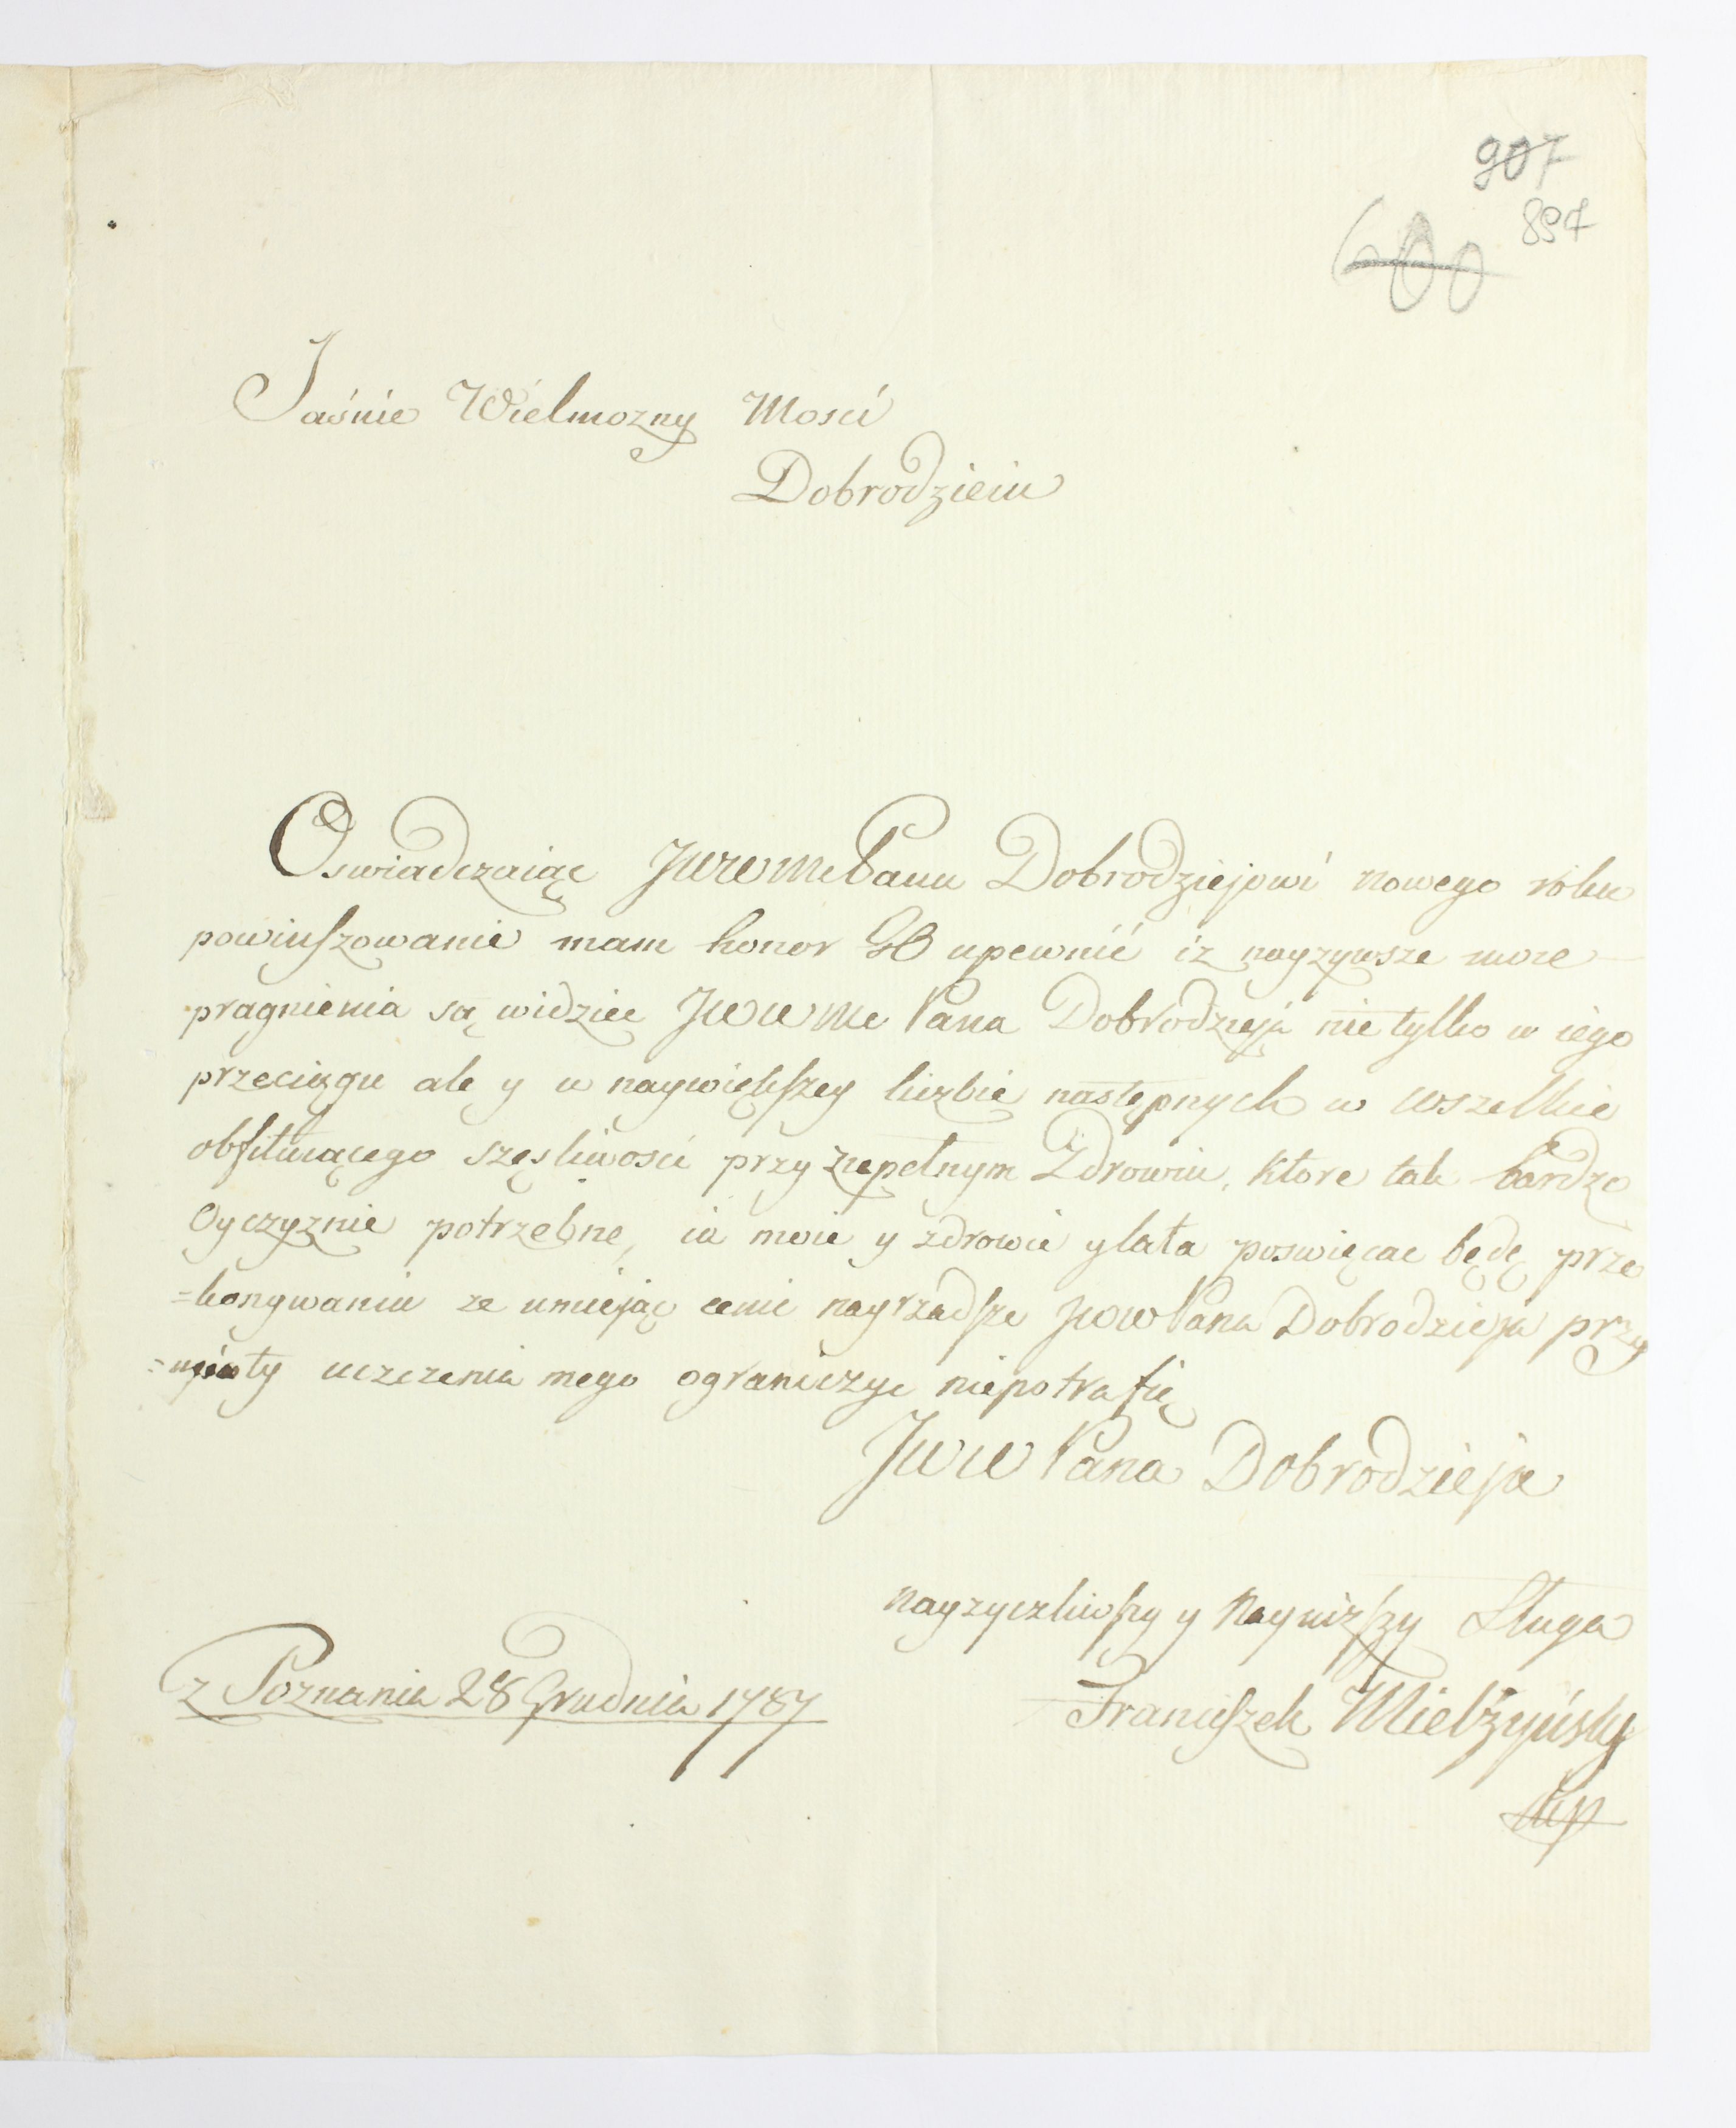 907
897
600
Jaśnie Wielmozny Mosci
Dobrodzieiu
Oswiadczaiąc JWWMcPanu Dobrodziejowi nowego roku
powinszowanie mam honor Go upewnić iz nayzywsze moie
pragnienia są widziec JWWMc Pana Dobrodzieja nie tylko w iego
przeciągu ale y w naywiększey liczbie następnych w wszelkie
obfituiącego szęsliwosci przy zupełnym Zdrowiu, ktore tak bardzo
Oyczyznie potrzebne, ia moie y zdrowie y lata poswięcac będę prze
=konywaniu ze umiejąc cenic nayrzadsze JWW Pana Dobrodzieja przy
=mioty uczczenia mego ograniczyc niepotrafię
JWW Pana Dobrodzieja
nayzyczliwszy y nayniższy Sługa
z Poznania 28 Grudnia 1787
Franciszek Mielżyński
mp